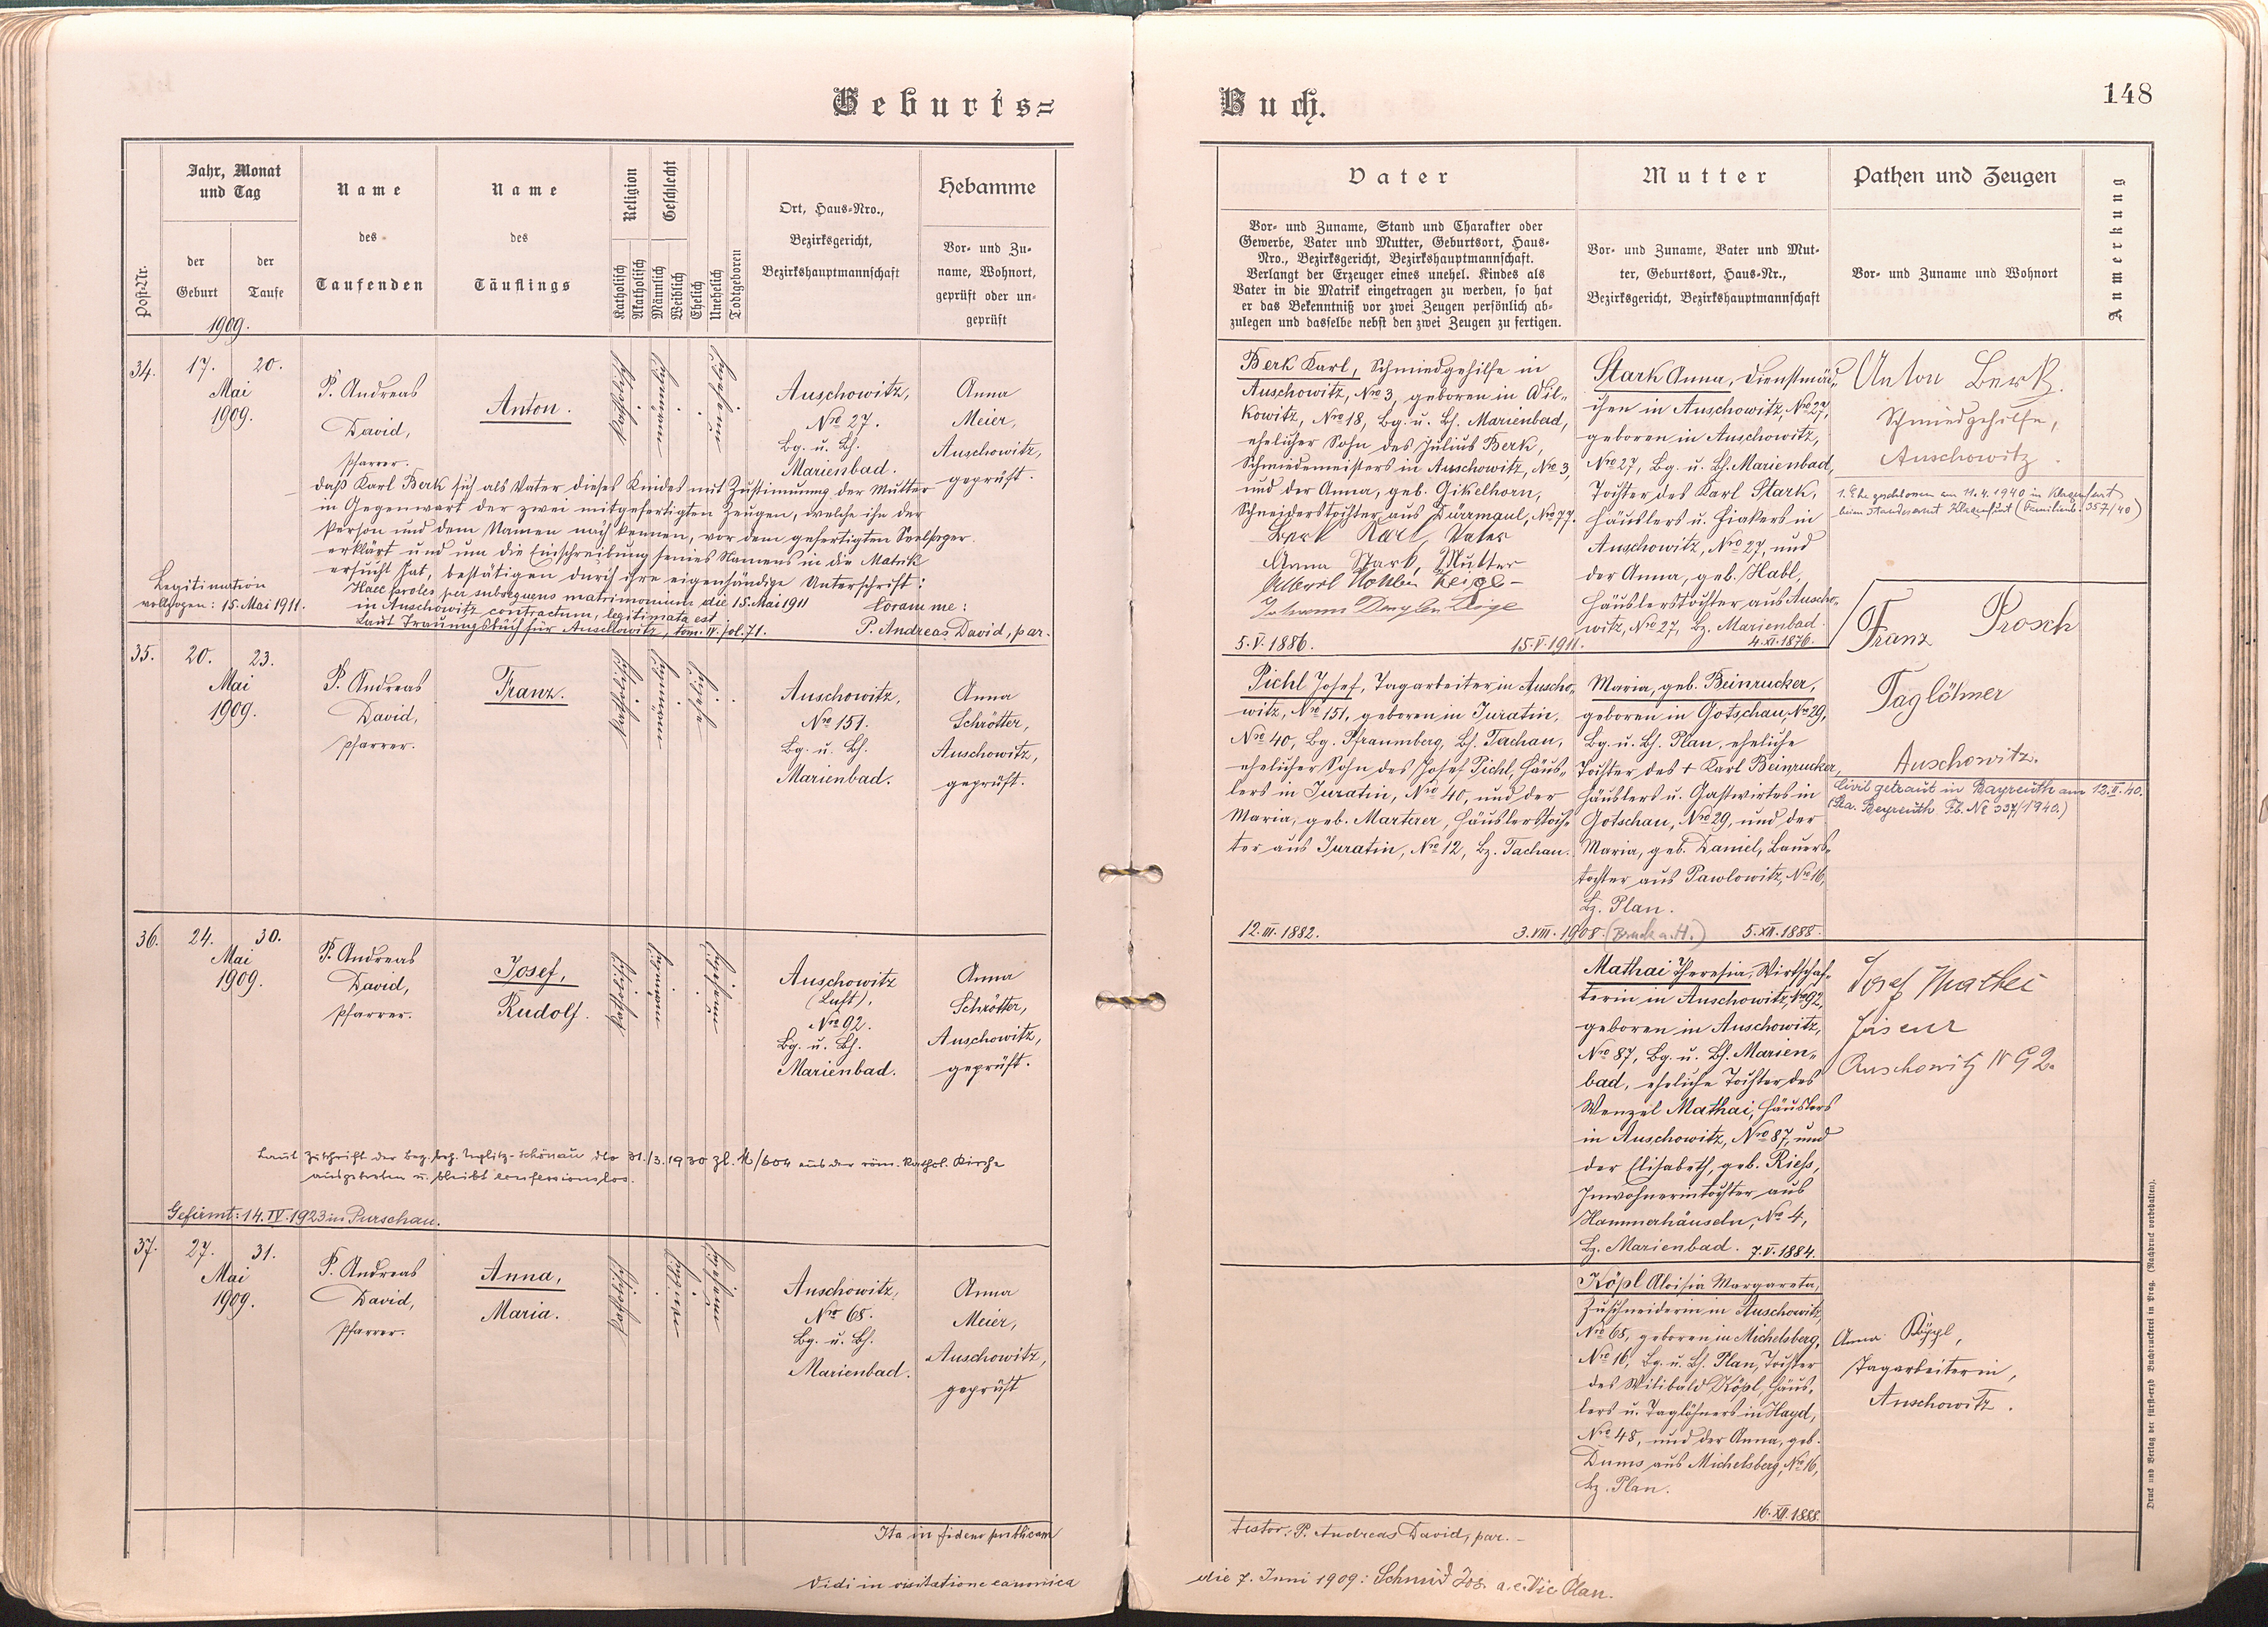 Geburts=
Buch.
148
Post-Nr.
Jahr, Monat
und Tag
der
Geburt
der
Taufe
1909.
Name
des
Taufenden
Name
des
Täuflings
Religion
Katholisch
Akatholisch
Geschlecht
Männlich
Weiblich
Ehelich
Unehelich
Todtgeboren
Ort, Haus-Nro.,
Bezirksgericht,
Bezirkshauptmannschaft
Hebamme
Vor- und Zu-
name, Wohnort,
geprüft oder un-
geprüft
Vater
Vor- und Zuname, Stand und Charakter oder
Gewerbe, Vater und Mutter, Geburtsort, Haus-
Nro., Bezirksgericht, Bezirkshauptmannschaft.
Verlangt der Erzeuger eines unehel. Kindes als
Vater in die Matrik eingetragen zu werden, so hat
er das Bekenntniß vor zwei Zeugen persönlich ab-
zulegen und dasselbe nebst den zwei Zeugen zu fertigen.
Mutter
Vor- und Zuname, Vater und Mut-
ter, Geburtsort, Haus-Nr.,
Bezirksgericht, Bezirkshauptmannschaft
Pathen und Zeugen
Vor- und Zuname und Wohnort
Anmerkung
34.
17.
20.
Mai
1909.
P. Andreas
David,
Pfarrer.
Anton.
katholisch
männlich
unehelich
Auschowitz,
Nro 27.
Bg. u. Bh.
Marienbad.
Anna
Meier,
Auschowitz,
geprüft.
daß Karl Berk sich als Vater dieses Kindes mit Zustimmung der Mutter
in Gegenwart der zwei mitgefertigten Zeugen, welche ihn der
Person und dem Namen nach kennen, vor dem gefertigten Seelsorger
erklärt und um die Einschreibung seines Namens in die Matrik
ersucht hat, bestätigen durch ihre eigenhändige Unterschrift:
Legitimation
vollzogen: 15. Mai 1911.
Haec proles per subsequens matrimonium die 15. Mai 1911
in Auschowitz contractum, legitimata est
Laut Trauungsbuch für Auschowitz, tom. IV. fol. 71.
Coram me:
P. Andreas David, par.
Berk Karl, Schmiedgehilfe in
Auschowitz, Nro 3, geboren in Wil-
kowitz, Nro 18, Bg. u. Bh. Marienbad,
ehelicher Sohn des Julius Berk,
Schmiedemeisters in Auschowitz, Nro 3,
und der Anna, geb. Gikelhorn,
Schneiderstochter aus Dürrmaul, Nro 77.
Berk Karl, Vater
Anna Stark, Mutter
5. V. 1886.
15. V. 1911.
Stark Anna, Dienstmäd-
chen in Auschowitz, Nro 27,
geboren in Auschowitz,
Nro 27, Bg. u. Bh. Marienbad,
Tochter des Karl Stark,
Häuslers u. Fiakers in
Auschowitz, Nro 27, und
der Anna, geb. Habl,
Häuslerstochter aus Auscho-
witz, Nro 27, Bz. Marienbad.
4. XI. 1876.
Anton Berk.
Schmiedgehilfe,
Auschowitz.
1. Ehe geschlossen am 11.4.1940 in Klagenfurt
beim Standesamt Klagenfurt (Familienb. 357/40)
35.
20.
23.
Mai
1909.
P. Andreas
David,
Pfarrer.
Franz.
katholisch
männlich
ehelich
Auschowitz,
Nro 151.
Bg. u. Bh.
Marienbad.
Anna
Schrötter,
Auschowitz,
geprüft.
Pichl Josef, Tagarbeiter in Auscho-
witz, Nro 151, geboren in Juratin,
Nro 40, Bg. Pfraumberg, Bh. Tachau,
ehelicher Sohn des Josef Pichl, Häus-
lers in Juratin, Nro 40, und der
Maria, geb. Marterer, Häuslerstoch-
ter aus Juratin, Nro 12, Bz. Tachau.
12. III. 1882.
3. VIII. 1908. (Bruck a. H.)
Maria, geb. Beinrucker,
geboren in Gotschau, Nro 29,
Bg. u. Bh. Plan, eheliche
Tochter des † Karl Beinrucker,
Häuslers u. Gastwirtes in
Gotschau, Nro 29, und der
Maria, geb. Daniel, Bauers-
tochter aus Pawlowitz, Nro 16,
Bz. Plan.
5. XII. 1888.
Franz Prosch
Taglöhner
Auschowitz.
Civil getraut in Bayreuth am 12. II. 40.
(Sta. Bayreuth Fb. No 337/1940.)
36.
24.
30.
Mai
1909.
P. Andreas
David,
Pfarrer.
Josef,
Rudolf.
katholisch
männlich
unehelich
Auschowitz
(Luft),
Nro 92.
Bg. u. Bh.
Marienbad.
Anna
Schrötter,
Auschowitz,
geprüft.
Laut Zuschrift der Bez. beh. Teplitz-Schönau dto 31./3. 1930 Zl. /604 aus der röm. kathol. Kirche
ausgetreten u. bleibt confessionslos.
Gefirmt: 14. IV. 1923 in Purschau.
Mathai Theresia, Wirtschaf-
terin in Auschowitz, Nro 92,
geboren in Auschowitz,
Nro 87, Bg. u. Bh. Marien-
bad, eheliche Tochter des
Wenzel Mathai, Häuslers
in Auschowitz, Nro 87, und
der Elisabeth, geb. Rieß,
Inwohnerintochter aus
Hammerhäuseln, Nro 4,
Bz. Marienbad. 7. V. 1884.
Josef Mathei
Friseur
Auschowitz N 92.
37.
27.
31.
Mai
1909.
P. Andreas
David,
Pfarrer.
Anna,
Maria.
katholisch
weiblich
unehelich
Auschowitz,
Nro 68.
Bg. u. Bh.
Marienbad.
Anna
Meier,
Auschowitz,
geprüft
Köpl Aloisia Margareta,
Zuschneiderin in Auschowitz,
Nro 68, geboren in Michelsberg,
Nro 16, Bg. u. Bh. Plan, Tochter
des Wilibald Köpl, Häus-
lers u. Taglöhners in Hayd,
Nro 48, und der Anna, geb.
Dums aus Michelsberg, Nro 16,
Bz. Plan.
16. XII. 1888.
Anna Köppl,
Tagarbeiterin,
Auschowitz.
Ita in fidem publicam
testor: P. Andreas David, par.
Vidi in visitatione canonica
die 7. Juni 1909: Schmid Jos. a. e. Vic Plan.
Druck und Verlag der fürst-erzb. Buchdruckerei in Prag. (Nachdruck vorbehalten).